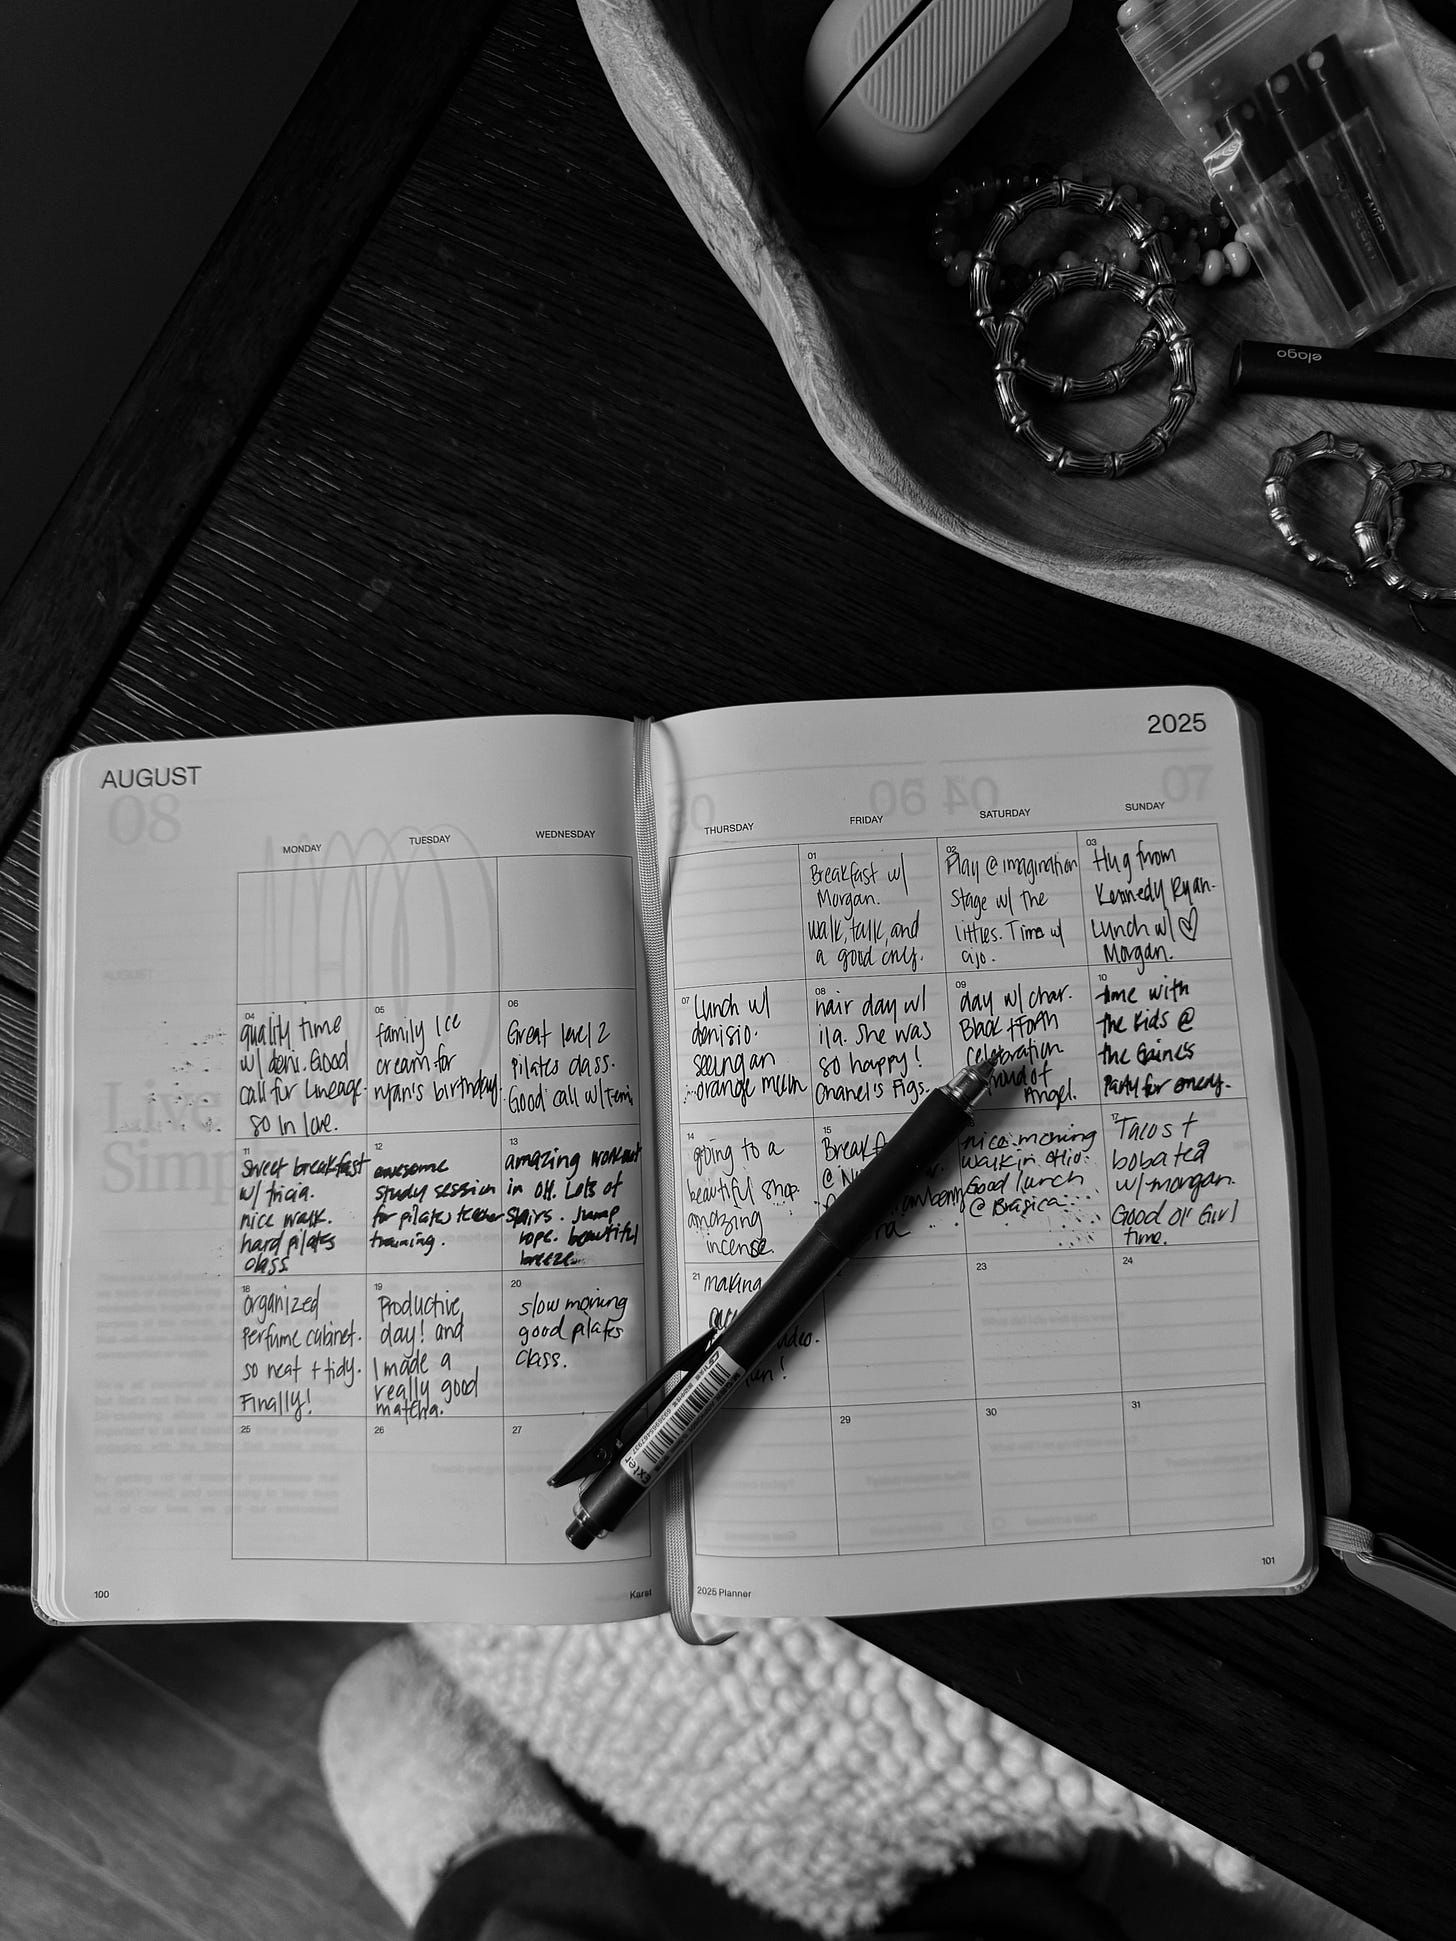 elago
2025
AUGUST
08
07
06
04
MONDAY
TUESDAY
WEDNESDAY
THURSDAY
FRIDAY
SATURDAY
SUNDAY
01
Breakfast w/
Morgan.
walk, talk, and
a good cry.
02
Play @ imagination
Stage w/ the
littles. Time w/
ajo.
03
Hug from
Kennedy Ryan.
Lunch w/ ♡
Morgan.
04
quality time
w/ deni. Good
call for Lineage.
so in love.
05
family Ice
cream for
ryan's birthday.
06
Great level 2
pilates class.
Good call w/ Temi.
07
Lunch w/
denisio.
seeing an
orange
08
hair day w/
ila. She was
so happy!
Chanel's Figs.
09
day w/ char.
Black + Forth
celebration
Proud of
Angel.
10
time with
the kids @
the Gaine's
Party for emery.
11
Sweet breakfast
w/ tricia.
nice walk.
hard pilates
class.
12
awesome
study session
for pilates teacher
training.
13
amazing workout
in OH. Lots of
stairs. Jump
rope. beautiful
breeze.
14
going to a
beautiful shop.
amazing
incense.
15
Breakfa
@
nice morning
walk in Ohio.
Good lunch
@ Brasica.
17
Tacos +
boba tea
w/ morgan.
Good ol' Girl
time.
18
organized
perfume cabinet.
so neat + tidy.
Finally!
19
Productive
day! and
I made a
really good
matcha.
20
slow morning
good pilates
class.
21
making
fun!
23
24
25
26
27
29
30
31
Live
Simp
exter
100
Karst
2025 Planner
101